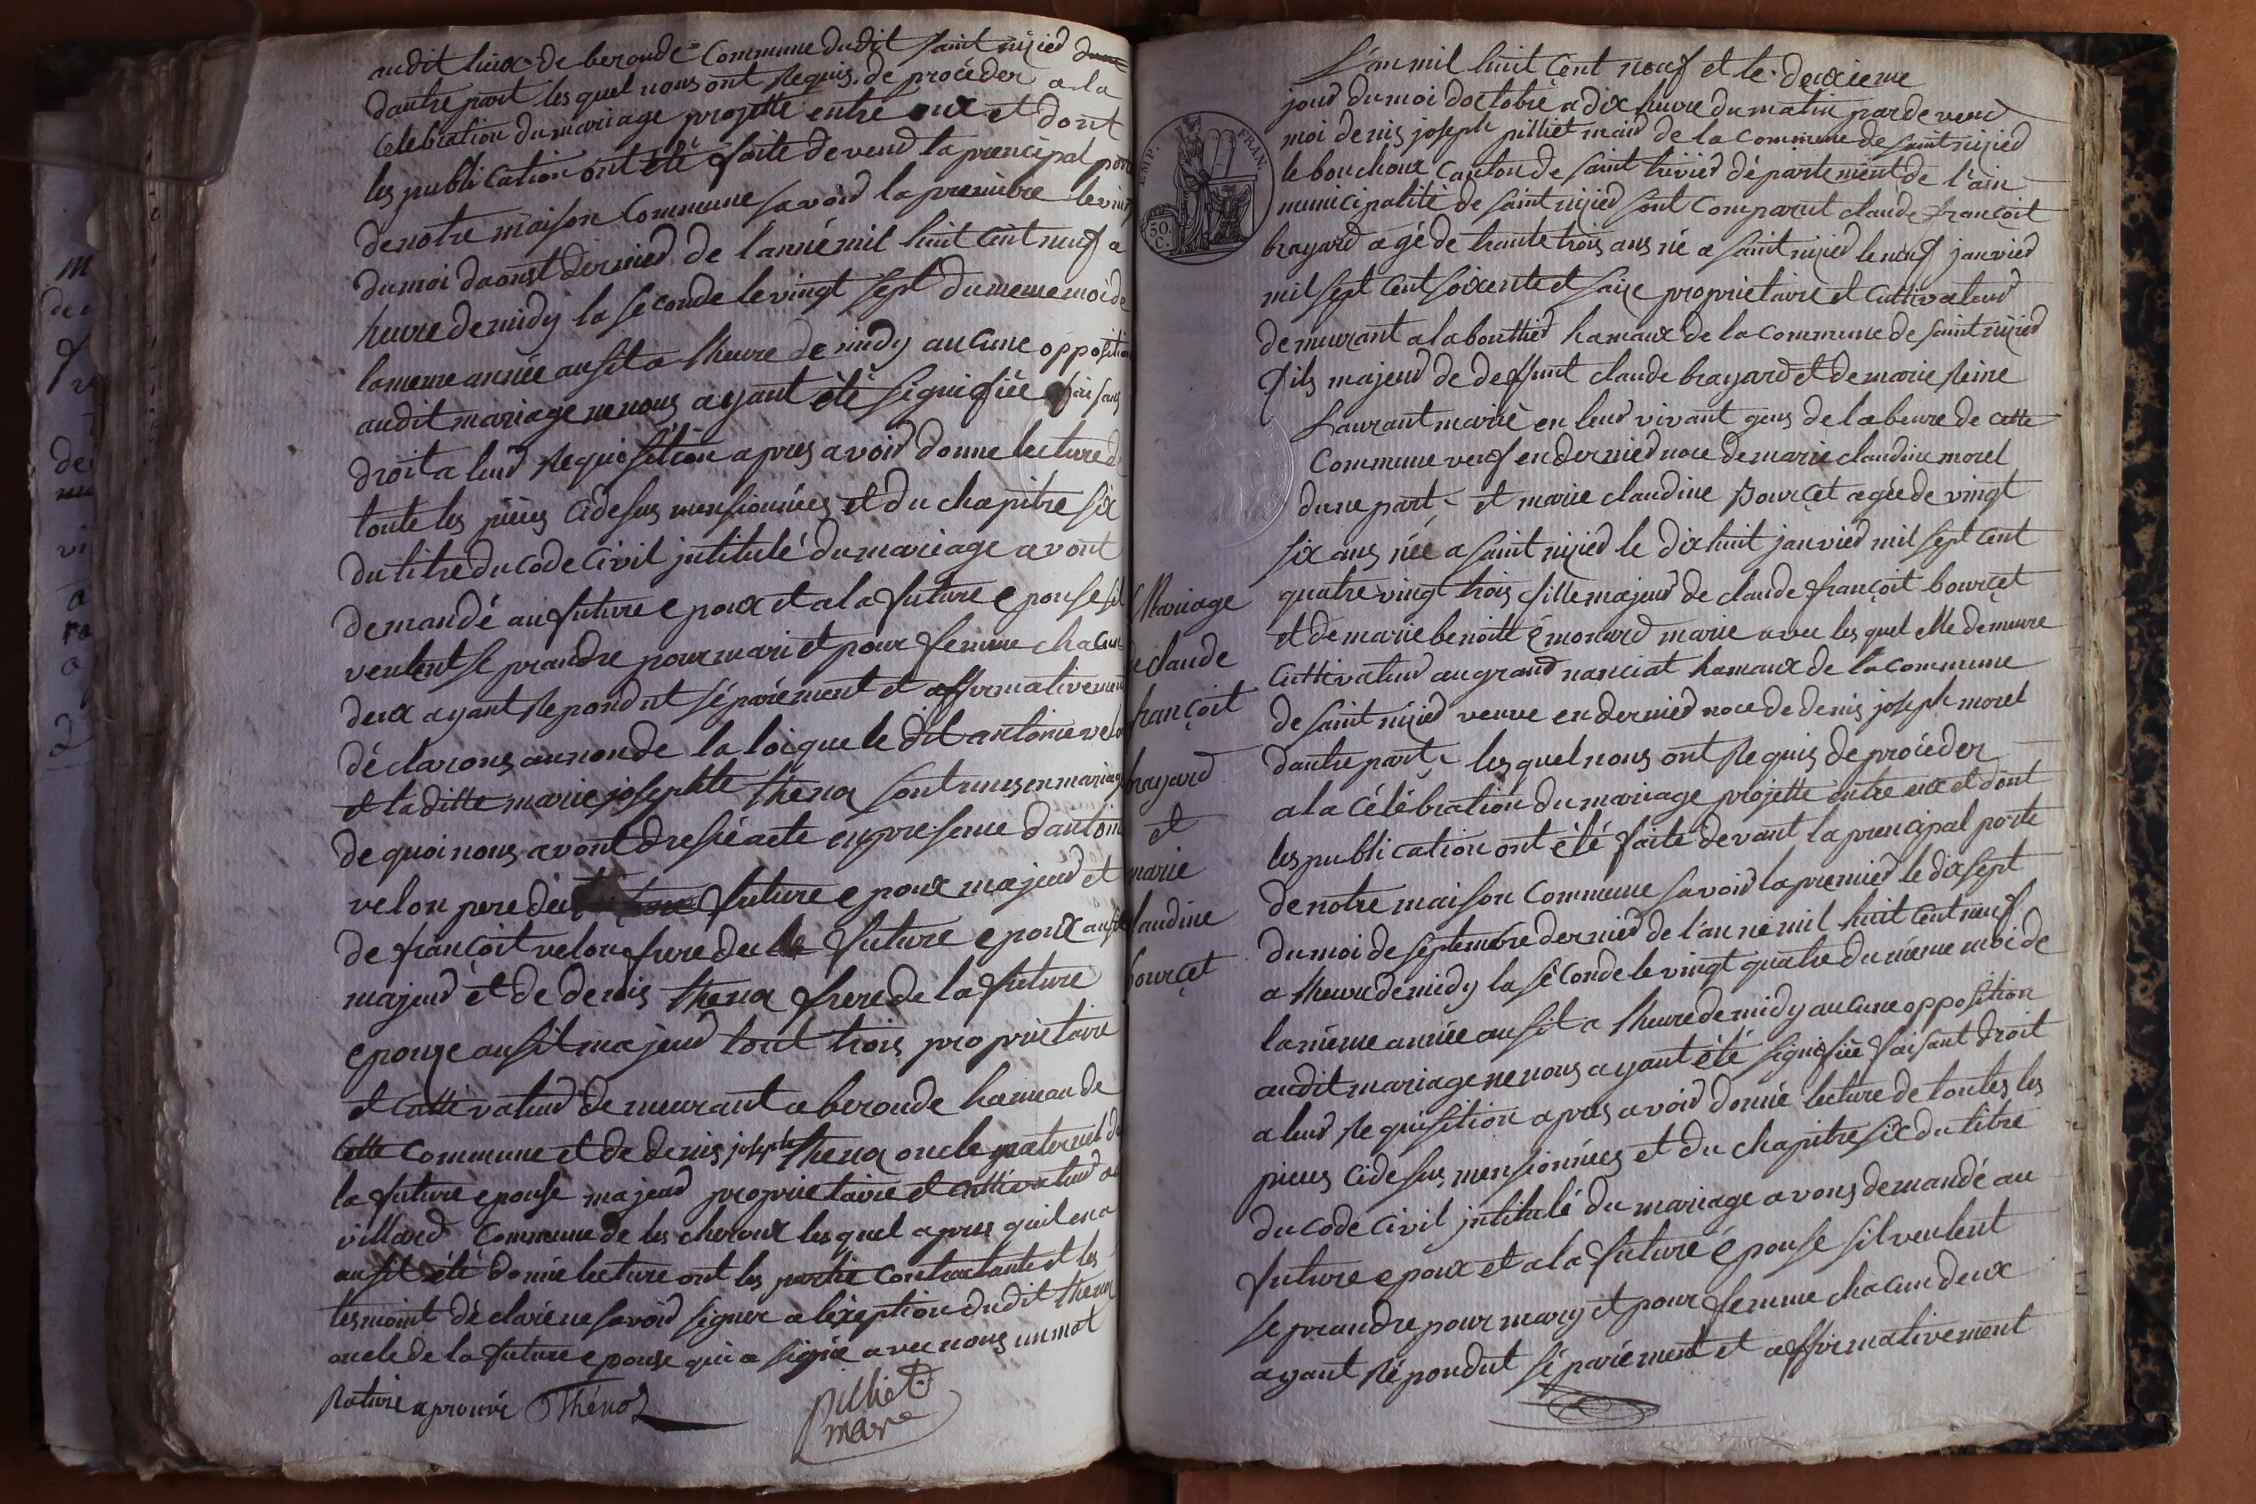 audit lieux de beronde Commune dudit Saint nizied
dautre part lesquel nous ont Requis de procéder a la
Célébration du mariage projetté entre eux et dont
les publication ont été faite devend la principal porte
de notre maison Commune Savoid la première le vingt
du moi daoust dernied de lanné mil huit Cent neuf a
heure de midy la Seconde le vingt Sept du meme moi de
la meme année ausit a lheure de midy aucune opposition
audit mariage ne nous ayant été Signifiée faisant
droit a leud Requisition apres avoid donne lecture de
toute les pièces Cidesus mensionnées et du chapitre Six
du titre du Code Civil jntitulé du mariage avont
demandé au future epoux et a la future epouse Sil
veulent Se prandre pour mari et pour femme chacun
deux ayant Repondut Séparément et affirmativement
déclarons au nom de la loi que le dit antoine velon
et la ditte marie josephte thena Sont unis en mariage
de quoi nous avont dressé acte en presence dantoine
velon pere du future epoux majeud et
de françoit velon frere du future epoux ausit
majeud et de denis thena frere de la future
epouze ausit majeud tout trois propriétaire
et Cultivateud demeurant a beronde hameau de
Cette Commune et de denis joseph thena oncle maternel de
la future epouse majeud propriétaire et Cultivateud au
villard Commune de les cheroux lesquel apres quil en a
ausit été donné lecture ont les partie Contractante et les
tesmoint déclaré ne Savoid Signer a lexeption dudit thena
oncle de la future epouse qui a Signé avec nous un mot
Raturé aprouvé Thénoz
pilliet
mare
Mariage
de claude
françoit
brayard
et
marie
claudine
bourcet
EMP. FRAN.
50
C.
Lan mil huit Cent neuf et le deuxieme
joud du moi doctobre a dix heure du matin pardevend
moi denis joseph pilliet maid de la Commune de Saint nizied
le bouchoux Canton de Saint trivied département de l'ain
municipalité de Saint nizied Sont Comparut claude françoit
brayard agé de trante trois ans né a Saint nizied le neuf janvied
mil Sept Cent Soixente et Saize proprietaire et Cultivateud
demeurant a la bouttied hamaux de la Commune de Saint nizied
fils majeud de deffunt claude brayard et de marie Reine
Laurant marié en leud vivant gens de labeure de Cette
Commune veuf en dernied noce de marie claudine morel
dune part et marie claudine Bourcet agée de vingt
Six ans née a Saint nizied le dix huit janvied mil Sept Cent
quatre vingt trois fille majeud de claude françoit bourcet
et de marie benoitte émonard marie avec lesquel elle demeure
Cultivateud au grand nanciat hamaux de la Commune
de Saint nizied veuve en dernied noce de denis joseph morel
dautre part lesquel nous ont Requis de procéder
a la Célébration du mariage projetté entre eux et dont
les publication ont été faite devant la principal porte
de notre maison Commune Savoid la premied le dix Sept
du moi de Septembre dernied de l'anné mil huit Cent neuf
a lheure de midy la Séconde le vingt quatre du même moi de
la même année ausit a lheure de midy aucune opposition
audit mariage ne nous ayant été Signifiée faisant droit
a leud Requisition apres avoid donné lecture de toutes les
pieces Cidesus mensionnées et du chapitre Six du titre
du Code Civil jntitulé du mariage avons demandé au
future epoux et a la future épouse Sil veulent
Se prandre pour mary et pour femme chacun deux
ayant Répondut Séparément et affirmativement